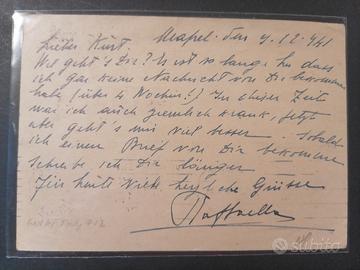 Neapel, den 4.12.941
Lieber Kurt.
Wie geht's Dir? Es ist so lange her dass
ich gar keine Nachricht von Dir bekommen
habe (über 4 Wochen!) In dieser Zeit
war ich auch ziemlich krank, jetzt
aber geht's mir viel besser. Sobald
ich einen Brief von Dir bekomme
schreibe ich Dir länger.
Für heute viele herzliche Grüsse
Raffaella
subito